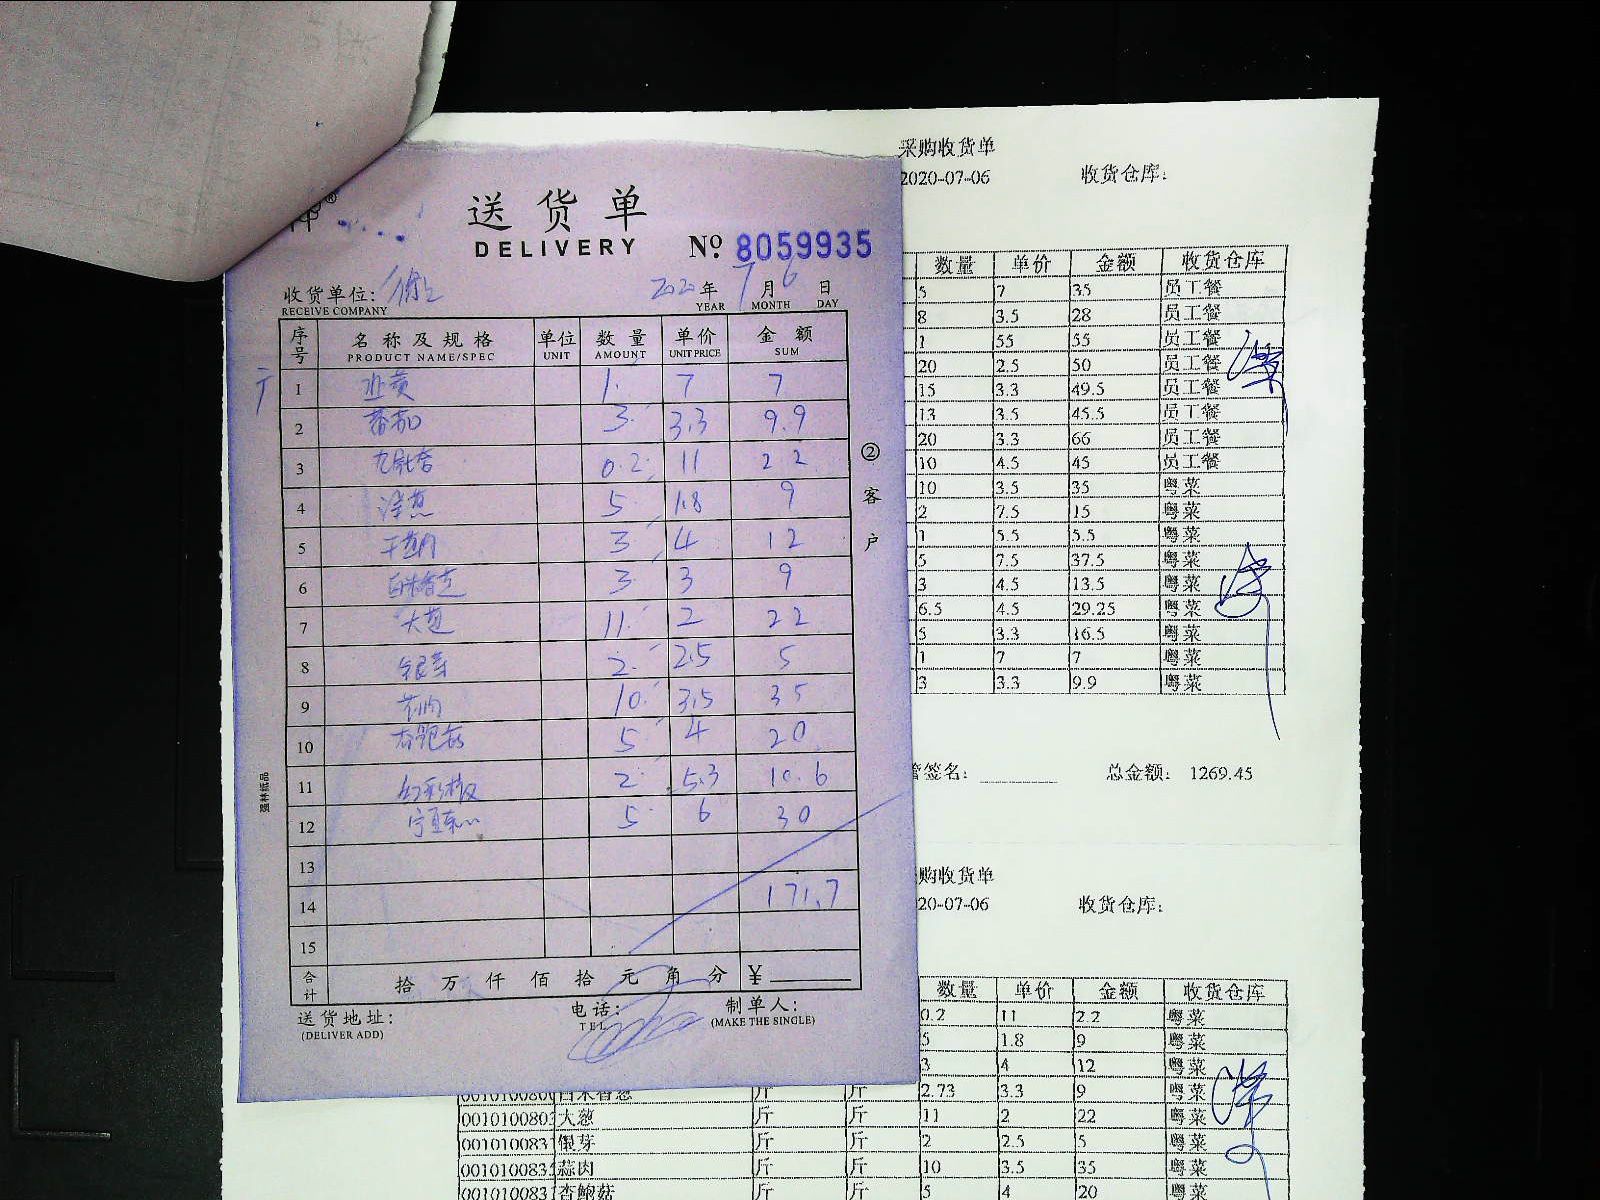 采购收货单
2020-07-06 收货仓库:
数量 单价 金额 收货仓库
5 7 35 员工餐
8 3.5 28 员工餐
1 55 55 员工餐
20 2.5 50 员工餐
15 3.3 49.5 员工餐
13 3.5 45.5 员工餐
20 3.3 66 员工餐
10 4.5 45 员工餐
10 3.5 35 粤菜
2 7.5 15 粤菜
1 5.5 5.5 粤菜
5 7.5 37.5 粤菜
3 4.5 13.5 粤菜
6.5 4.5 29.25 粤菜
5 3.3 16.5 粤菜
1 7 7 粤菜
3 3.3 9.9 粤菜
签名: 总金额: 1269.45
送货单
DELIVERY № 8059935
收货单位: 2020年 7月 6日
RECEIVE COMPANY YEAR MONTH DAY
序号 名称及规格 单位 数量 单价 金额
PRODUCT NAME/SPEC UNIT AMOUNT UNIT PRICE SUM
1 韭黄 1 7 7
2 番茄 3 3.3 9.9
3 0.2 11 2 2
4 洋葱 5 1.8 9
5 干葱肉 3 4 12
6 3 3 9
7 大葱 11 2 22
8 银芽 2 2.5 5
9 蒜肉 10 3.5 35
10 杏鲍菇 5 4 20
11 2 5.3 10.6
12 5 6 30
13
14 171.7
15
合计 拾 万 仟 佰 拾 元 角 分 ¥
送货地址: 电话: 制单人:
(DELIVER ADD) TEL (MAKE THE SINGLE)
②客户
强林纸品
购收货单
20-07-06 收货仓库:
数量 单价 金额 收货仓库
0.2 11 2.2 粤菜
5 1.8 9 粤菜
3 4 12 粤菜
斤 斤 2.73 3.3 9 粤菜
0010100803 大葱 斤 斤 11 2 22 粤菜
001010083 银芽 斤 斤 2 2.5 5 粤菜
001010083 蒜肉 斤 斤 10 3.5 35 粤菜
001010083 杏鲍菇 斤 斤 5 4 20 粤菜